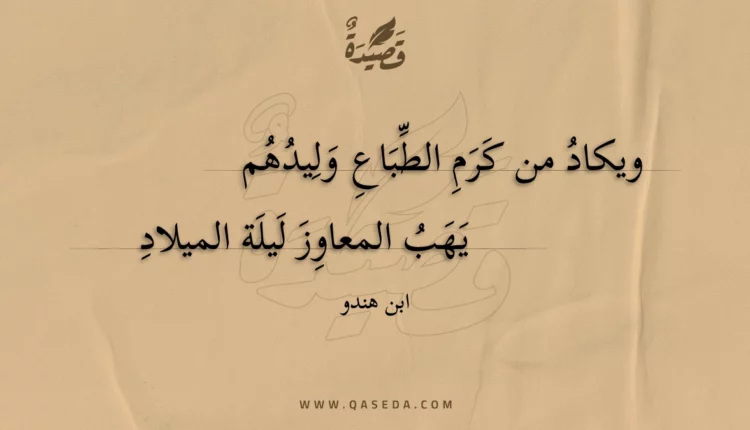 قَصِيدَةٌ
ويكادُ من كَرَمِ الطِّبَاعِ وَلِيدُهُم
يَهَبُ المعاوِزَ لَيلَة الميلادِ
ابن هندو
WWW.QASEDA.COM